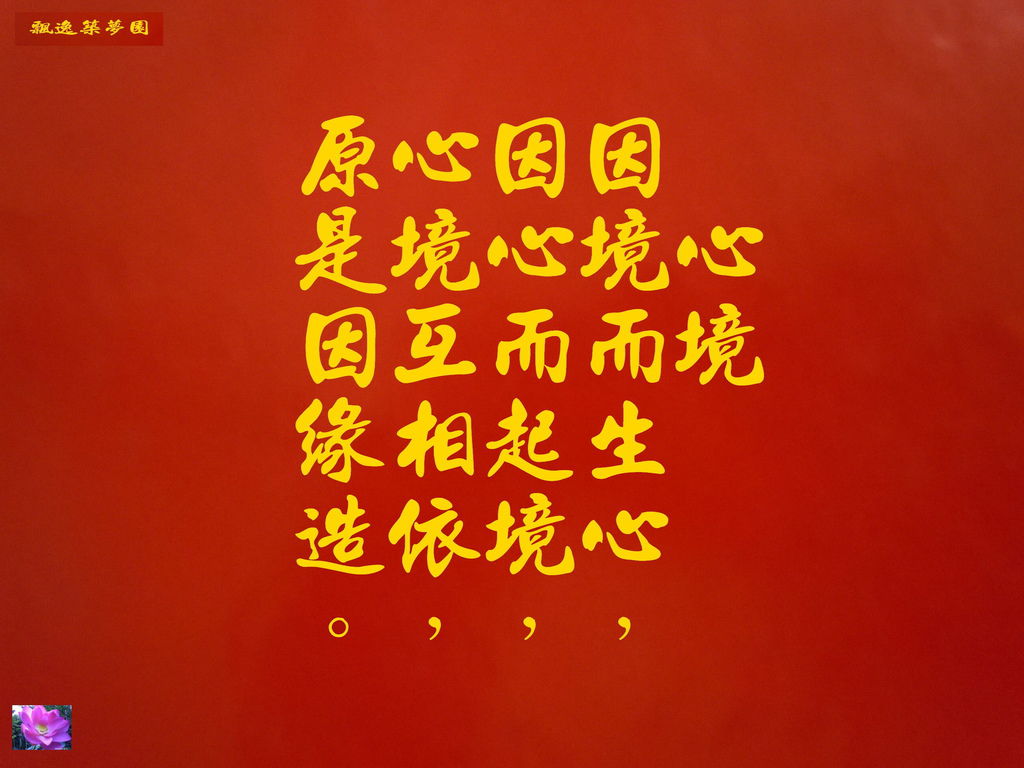 飄逸築夢園
心境
因境而生心，
因心而起境，
心境互相依，
原是因緣造。